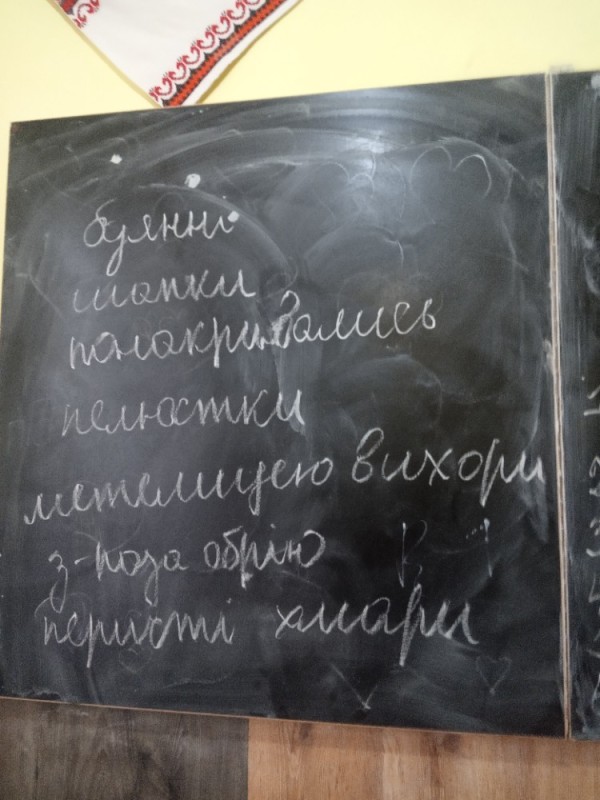 буянні
шапки
понакривались
пелюстки
метелицею вихори
з-поза обрію
перисті хмари